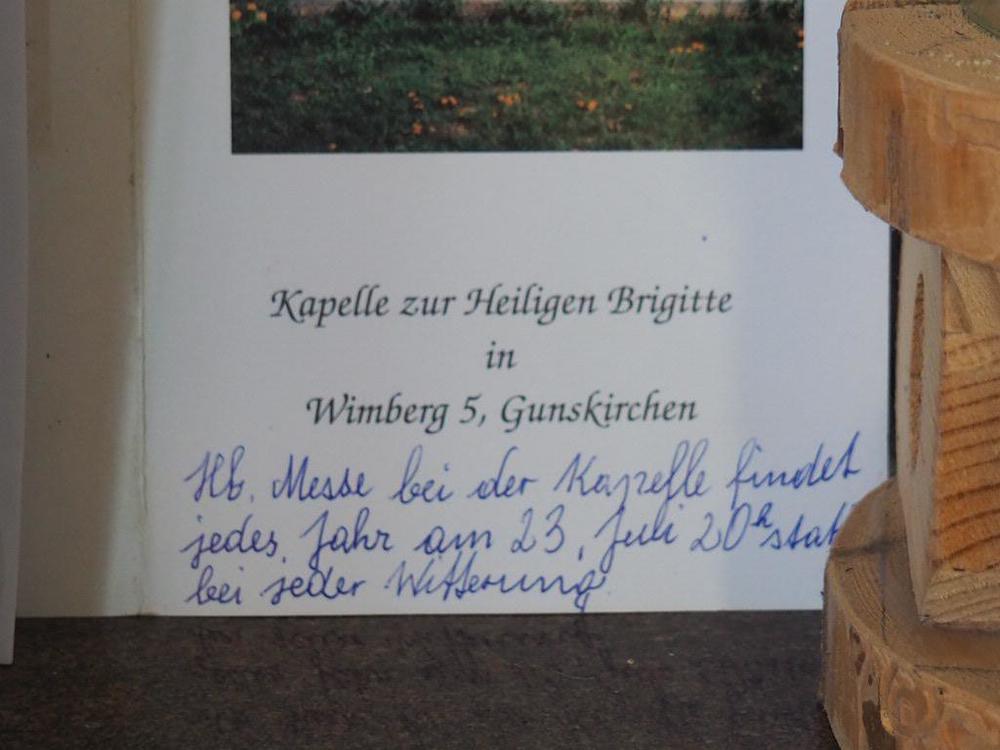 Kapelle zur Heiligen Brigitte
in
Wimberg 5, Gunskirchen
Hl. Messe bei der Kapelle findet
jedes Jahr am 23. Juli 20h statt
bei jeder Witterung